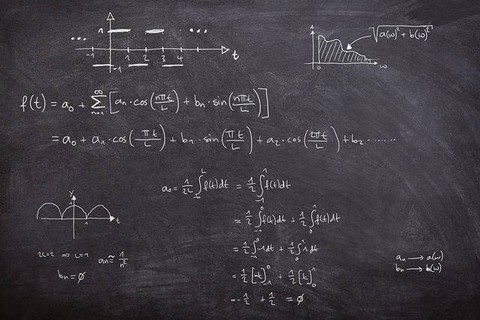 ... 1 ...
-1 1 2 3 4 t
-1
√(a(ω)² + b(ω)²)
0 ω
f(t) = a₀ + ∑ₙ₌₁^∞ [aₙ · cos(nπt/L) + bₙ · sin(nπt/L)]
= a₀ + a₁ · cos(πt/L) + b₁ · sin(πt/L) + a₂ · cos(2πt/L) + b₂ ........
a₀ = 1/2L ∫₋L^L f(t)dt = 1/2 ∫₋₁^1 f(t)dt
= 1/2 ∫₋₁^0 f(t)dt + 1/2 ∫₀^1 f(t)dt
= 1/2 ∫₋₁^0 -1dt + 1/2 ∫₀^1 1dt
= 1/2 [-t]₋₁^0 + 1/2 [t]₀^1
= -1/2 + 1/2 = ∅
Y
t
aₙ ≈ 1/n²
bₙ = ∅
aₙ → a(ω)
bₙ → b(ω)